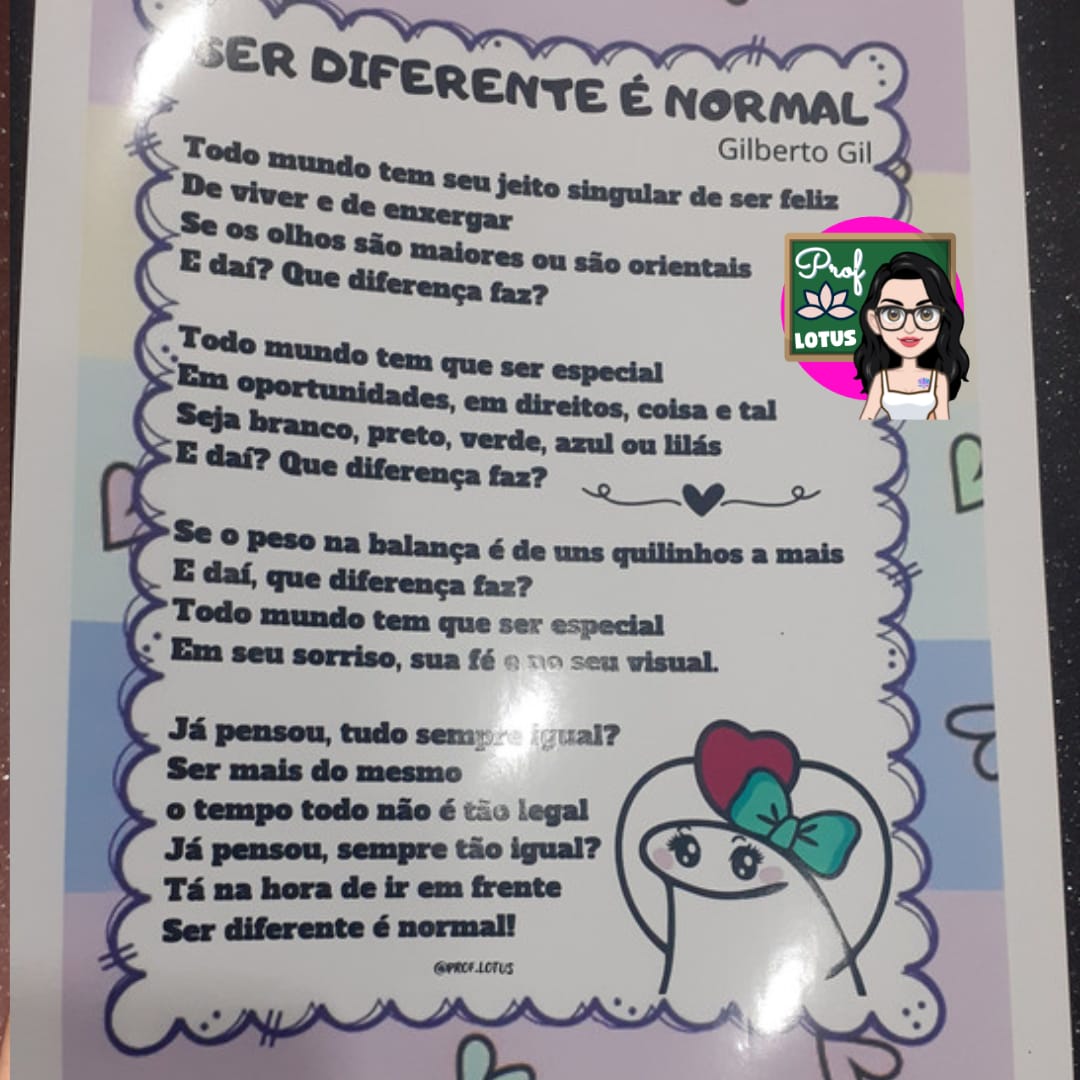 SER DIFERENTE É NORMAL
Gilberto Gil
Todo mundo tem seu jeito singular de ser feliz
De viver e de enxergar
Se os olhos são maiores ou são orientais
E daí? Que diferença faz?
Prof
LOTUS
Todo mundo tem que ser especial
Em oportunidades, em direitos, coisa e tal
Seja branco, preto, verde, azul ou lilás
E daí? Que diferença faz?
Se o peso na balança é de uns quilinhos a mais
E daí, que diferença faz?
Todo mundo tem que ser especial
Em seu sorriso, sua fé e no seu visual.
Já pensou, tudo sempre igual?
Ser mais do mesmo
o tempo todo não é tão legal
Já pensou, sempre tão igual?
Tá na hora de ir em frente
Ser diferente é normal!
@PROF.LOTUS